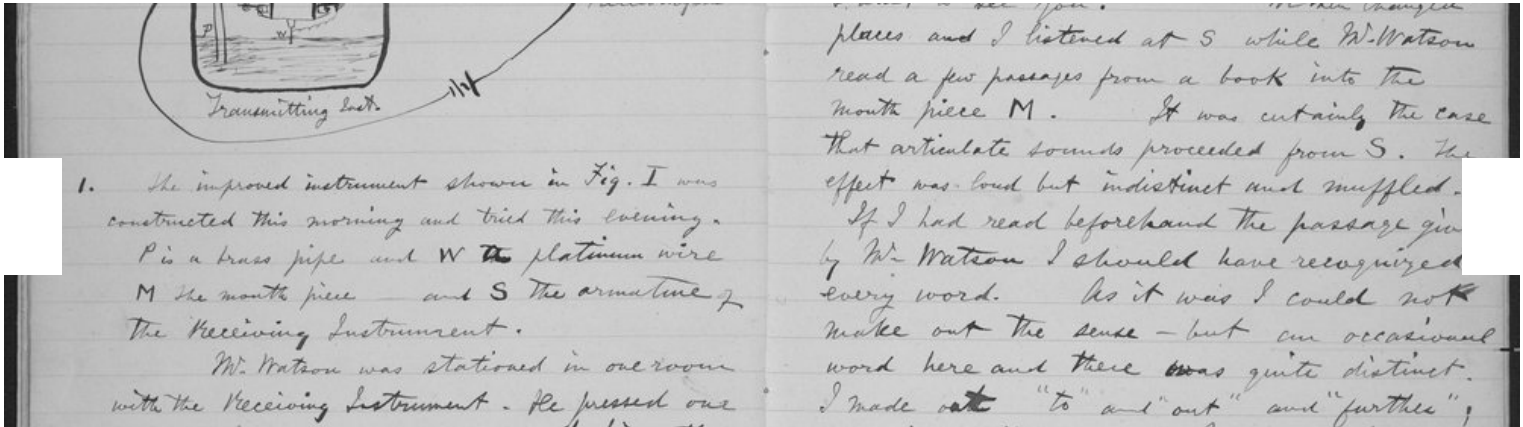 P
W
Transmitting Inst.
1. The improved instrument shown in Fig. I was
constructed this morning and tried this evening.
P is a brass pipe and W the platinum wire
M the mouth piece and S the armature of
the Receiving Instrument.
Mr. Watson was stationed in one room
with the Receiving Instrument. He pressed one
to see you." We then changed
places and I listened at S while Mr. Watson
read a few passages from a book into the
mouth piece M. It was certainly the case
that articulate sounds proceeded from S. The
effect was loud but indistinct and muffled.
If I had read beforehand the passage giv
by Mr. Watson I should have recognized
every word. As it was I could not
make out the sense - but an occasional
word here and there was quite distinct.
I made out "to" and "out" and "further";